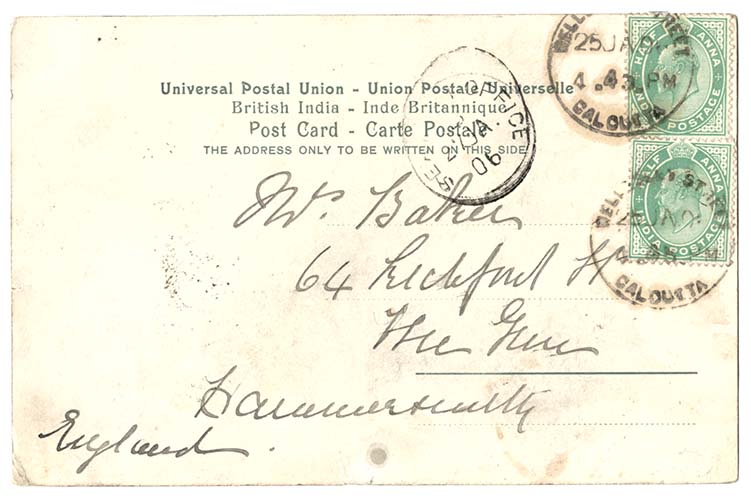 Universal Postal Union - Union Postale Universelle
British India - Inde Britannique
Post Card - Carte Postale
THE ADDRESS ONLY TO BE WRITTEN ON THIS SIDE
HALF ANNA
INDIA POSTAGE
25 JA
4.43. PM
CALCUTTA
HALF ANNA
INDIA POSTAGE
CALCUTTA
OFFICE
JA
06
Mrs Baker
64
The
Hammersmith
England